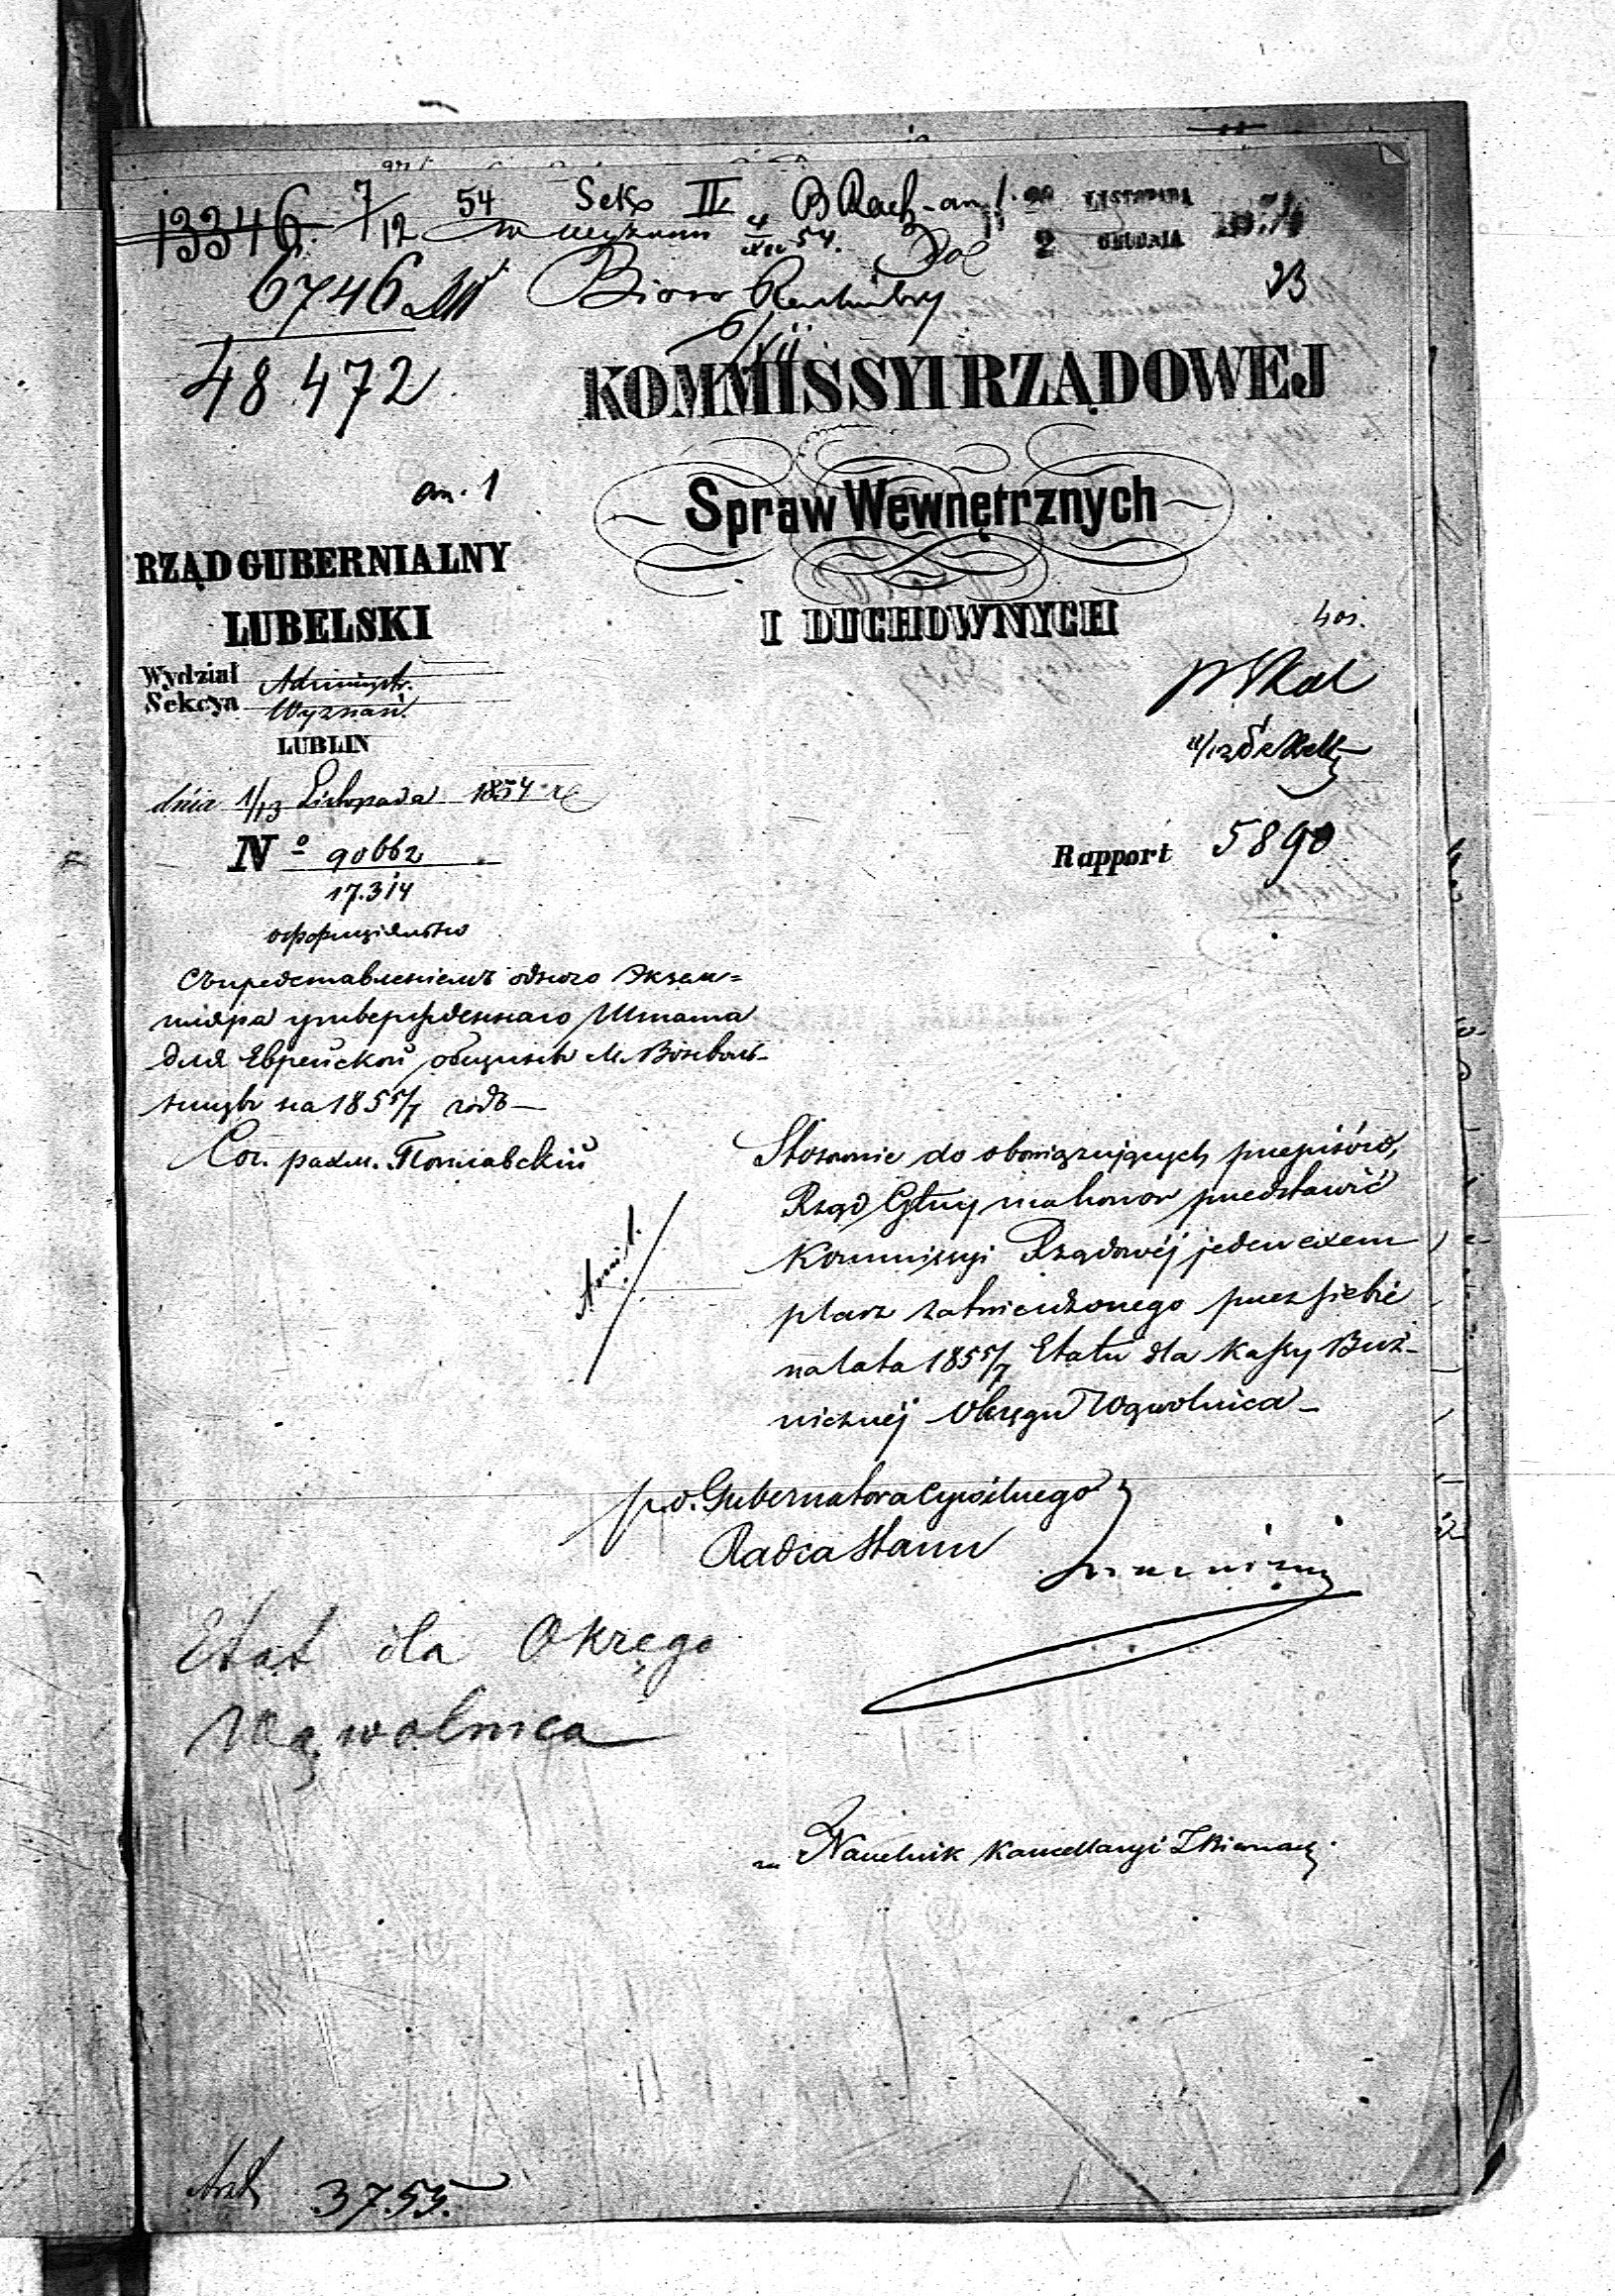 13346 7/12 54 Sekc II B Rach - an 1. 20 LISTOPADA
4/XII 54. 2 GRUDNIA 1854
6746 Biuro Rachuby 23
6/XII
48472
KOMMISSYI RZĄDOWEJ
an. 1
Spraw Wewnętrznych
I DUCHOWNYCH
RZĄD GUBERNIALNY
LUBELSKI
Wydział Administr.
Sekcya Wyznań.
LUBLIN
dnia 1/13 Listopada 1854 r
No 90662
17.314
Rapport 5890
Съ представленіемъ одного Экзем=
пляра утвержденнаго Штата
для Еврейской общины М. Вонволь-
ницы на 1855/7 годъ —
Сос. радм.
Stosownie do obowiązujących przepisów,
Rząd Głny ma honor przedstawić
Kommissyi Rządowéj jeden exem
plarz zatwierdzonego przez siebie
na lata 1855/7 Etatu dla Kassy Boż-
nicznéj Okręgu Wąwolnica –
Annex 1.
p.o. Gubernatora Cywilnego
Radca Stanu
Etat dla Okręgo
Wąwolnica
Naczelnik Kancellaryi
37.55.